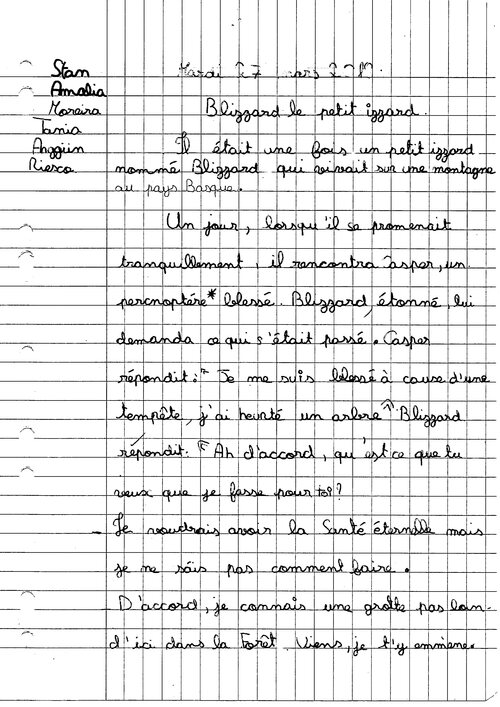 Stan
Amalia
Moreira
Tania
Anggiin
Riesco
Mardi 27 mars
Blizzard le petit izzard.
Il était une fois un petit izzard
nommé Blizzard qui vivait sur une montagne
au pays Basque.
Un jour, lorsqu'il se promenait
tranquillement, il rencontra Casper, un
percnoptére* blessé. Blizzard, étonné, lui
demanda ce qui s'était passé. Casper
répondit: "Je me suis blessé à cause d'une
tempête, j'ai heurté un arbre". Blizzard
répondit: "Ah d'accord, qu'est ce que tu
veux que je fasse pour toi?
- Je voudrais avoir la Santé éternelle mais
je ne sais pas comment faire.
- D'accord, je connais une grotte pas loin
d'ici dans la Forêt. Viens, je t'y emmene.